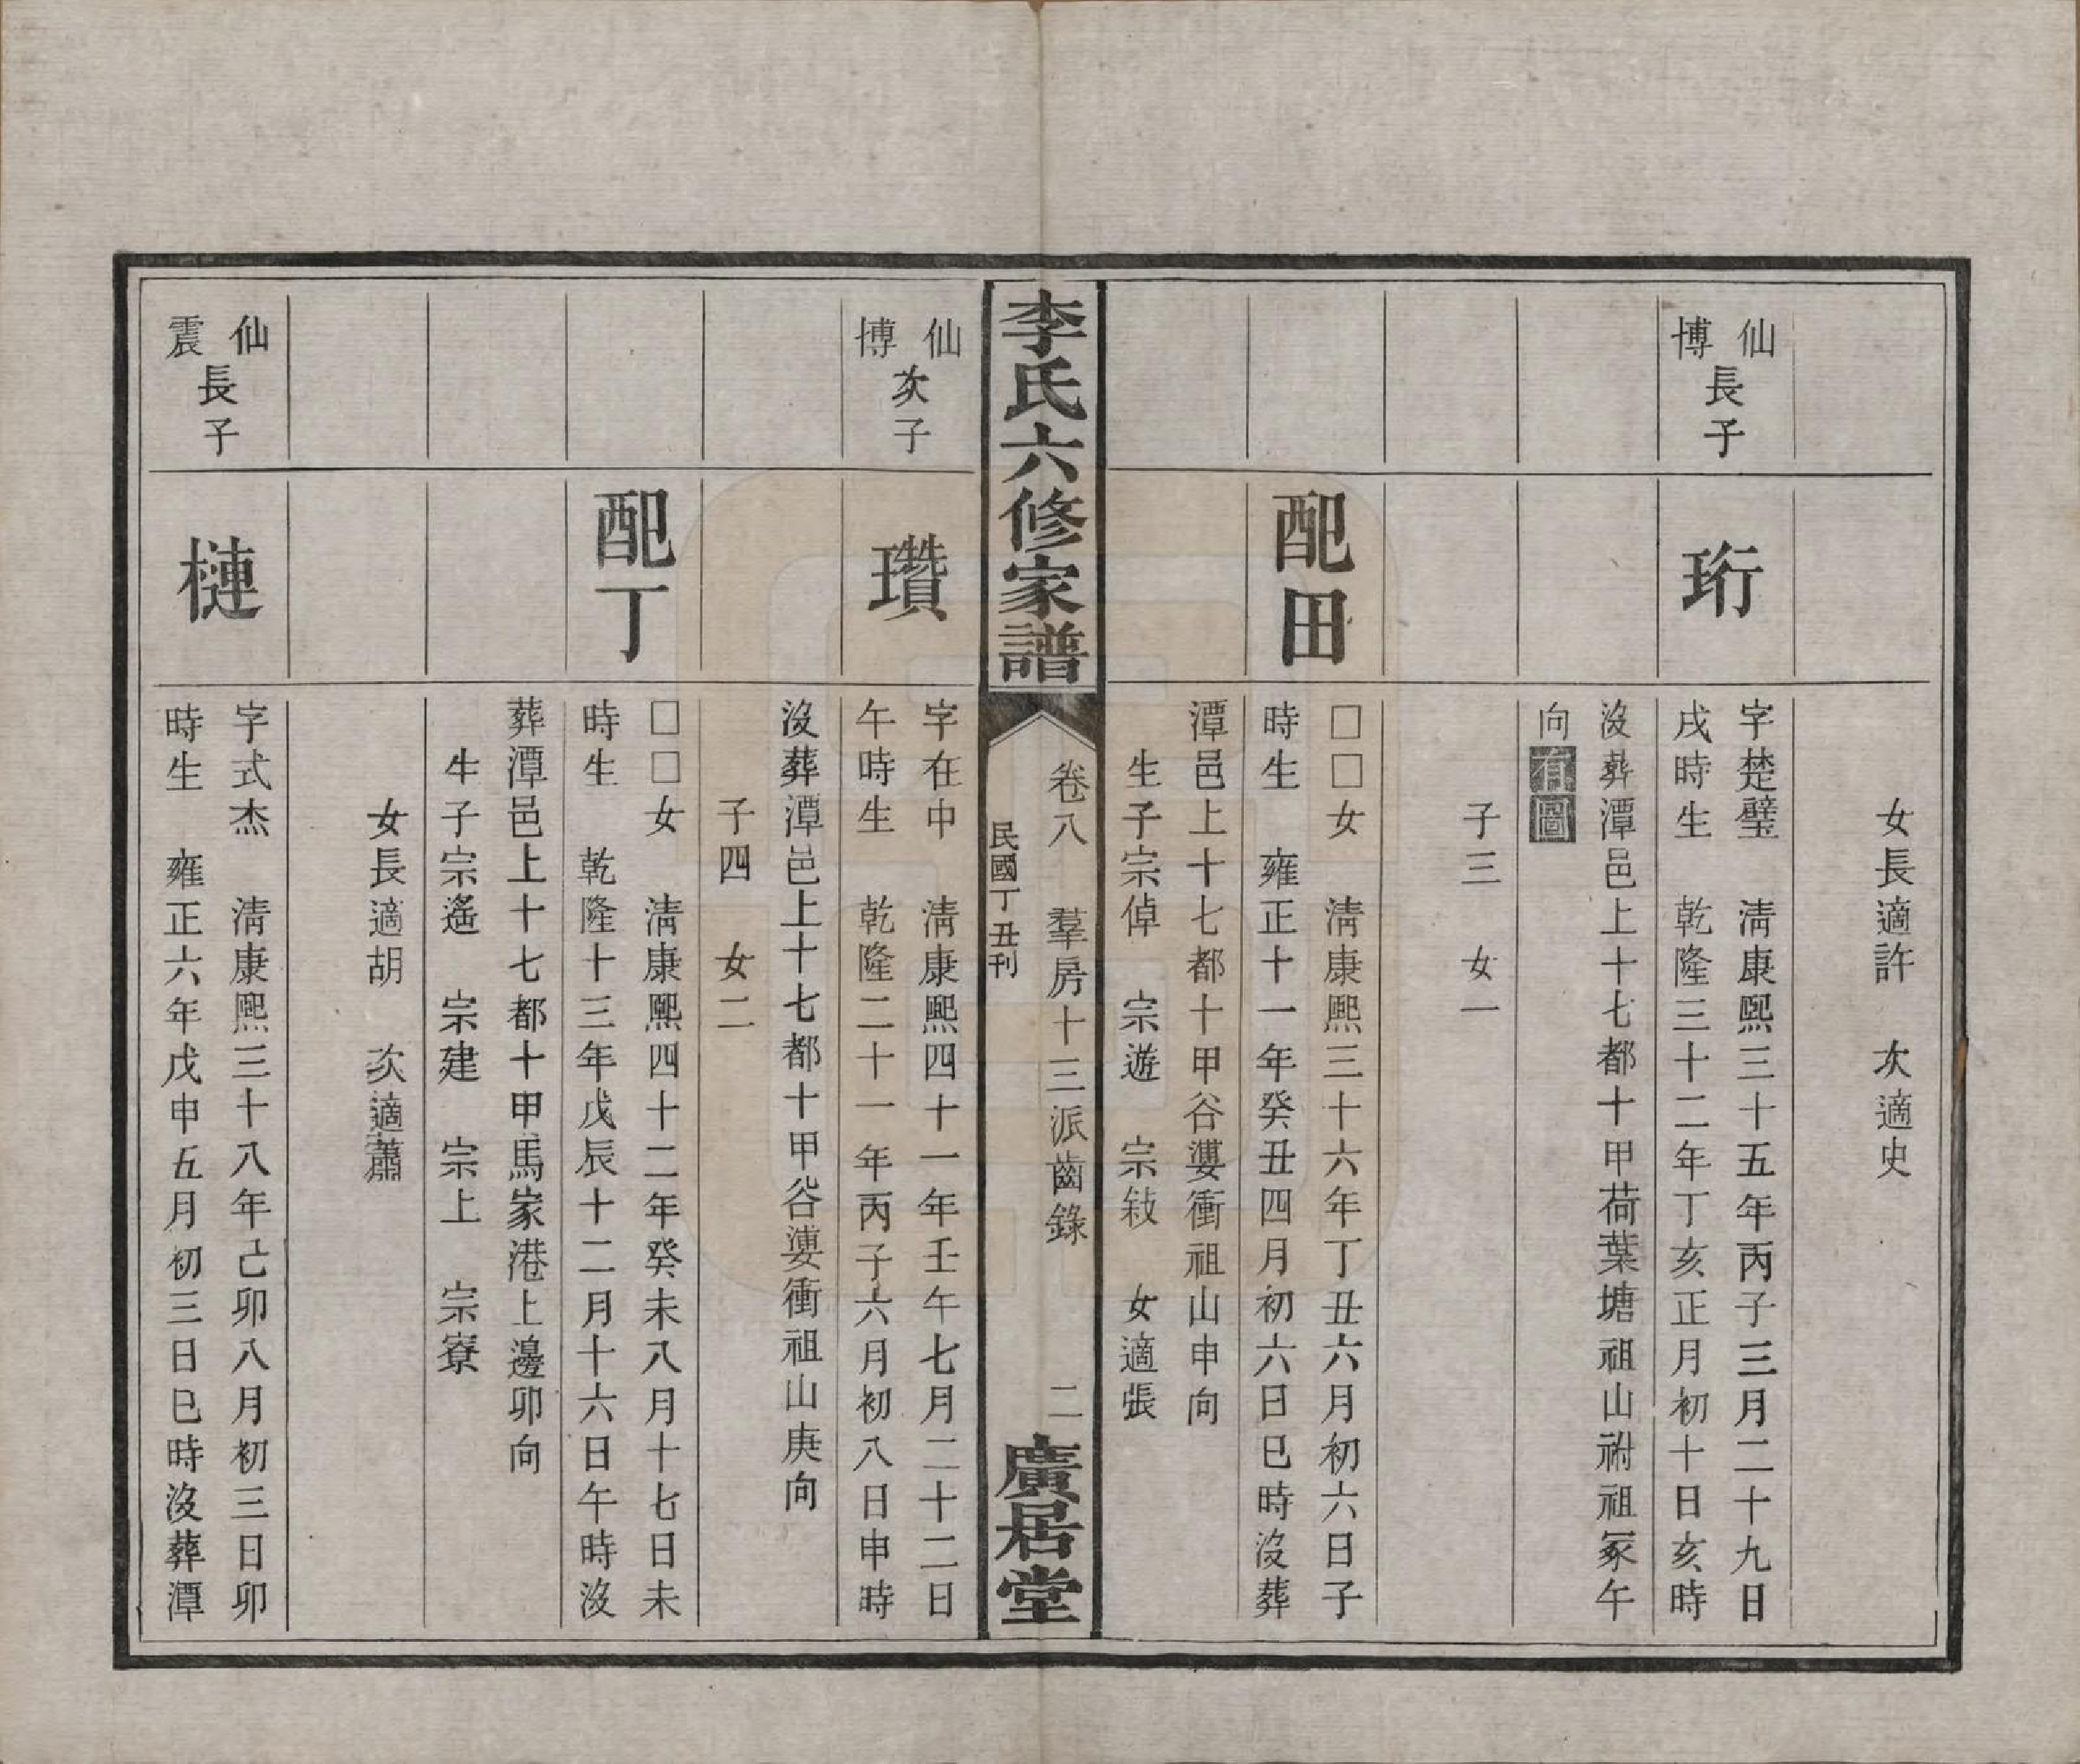 女長適許　次適史
仙博長子
珩
字楚璧　清康熙三十五年丙子三月二十九日
戌時生　乾隆三十二年丁亥正月初十日亥時
沒葬潭邑上十七都十甲荷葉塘祖山祔祖冢午
向有圖
子三　女一
配田
□□女　清康熙三十六年丁丑六月初六日子
時生　雍正十一年癸丑四月初六日巳時沒葬
潭邑上十七都十甲谷婁衝祖山申向
生子宗倬　宗遊　宗敍　女適張
李氏六修家譜
卷八　羣房十三派齒錄　二
民國丁丑刊
廣居堂
仙博次子
瓚
字在中　清康熙四十一年壬午七月二十二日
午時生　乾隆二十一年丙子六月初八日申時
沒葬潭邑上十七都十甲谷婁衝祖山庚向
子四　女二
配丁
□□女　清康熙四十二年癸未八月十七日未
時生　乾隆十三年戊辰十二月十六日午時沒
葬潭邑上十七都十甲馬家港上邊卯向
生子宗遙　宗建　宗上　宗寮
女長適胡　次適蕭
仙震長子
槤
字式杰　清康熙三十八年己卯八月初三日卯
時生　雍正六年戊申五月初三日巳時沒葬潭